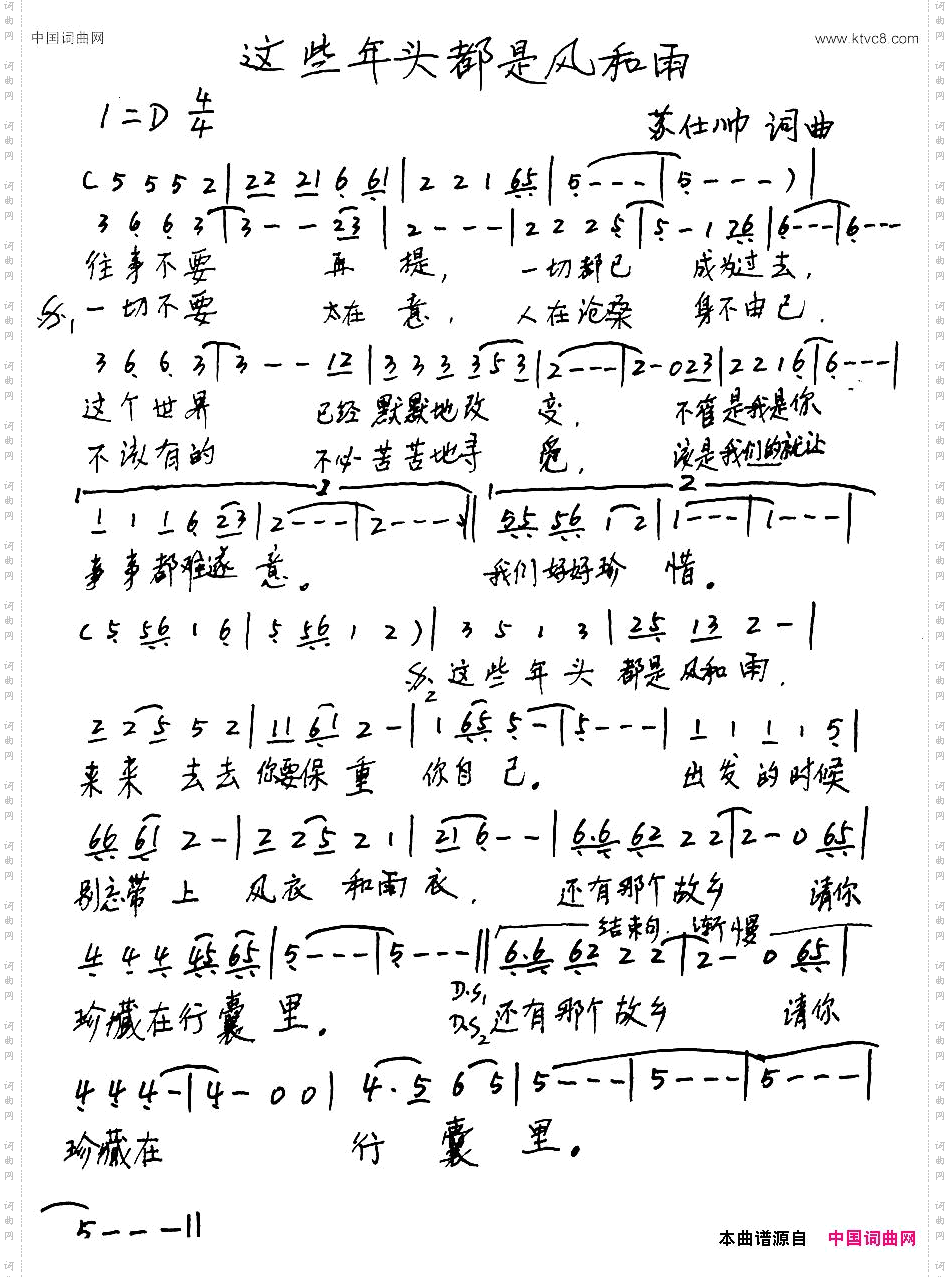 中国词曲网 www.ktvc8.com
这些年头都是风和雨
1=D 4/4
苏仕帅 词曲
( 5 5 5 2 | 22 21 6 61 | 2 2 1 65 | 5 - - - | 5 - - - ) |
3 6 6 3 | 3 - - 23 | 2 - - - | 2 2 2 5 | 5 - 1 26 | 6 - - - | 6 - - -
往事不要 再提, 一切都已 成为过去,
一切不要 太在意, 人在沧桑 身不由己.
3 6 6 3 | 3 - - 12 | 3 3 3 3 5 3 | 2 - - - | 2 - 0 23 | 2 2 1 6 | 6 - - - |
这个世界 已经默默地改变, 不管是我是你
不该有的 不必苦苦地寻觅, 该是我们的就让
1 1 1 6 23 | 2 - - - | 2 - - - :|| 55 56 1 2 | 1 - - - | 1 - - - |
事事都难遂意。 我们好好珍惜。
( 5 56 1 6 | 5 56 1 2 ) | 3 5 1 3 | 25 13 2 - |
这些年头都是风和雨,
2 2 5 5 2 | 11 61 2 - | 1 65 5 - | 5 - - - | 1 1 1 1 5 |
来来去去你要保重你自己。 出发的时候
66 61 2 - | 2 2 5 2 1 | 21 6 - - | 6.6 62 2 2 | 2 - 0 65 |
别忘带上 风衣和雨衣, 还有那个故乡 请你
结束句 渐慢
4 4 4 45 65 | 5 - - - | 5 - - - || 6.6 62 2 2 | 2 - 0 65 |
珍藏在行囊里。 D.S1 D.S2 还有那个故乡 请你
4 4 4 - | 4 - 0 0 | 4 . 5 6 5 | 5 - - - | 5 - - - | 5 - - - |
珍藏在 行囊里。
5 - - - ||
本曲谱源自 中国词曲网